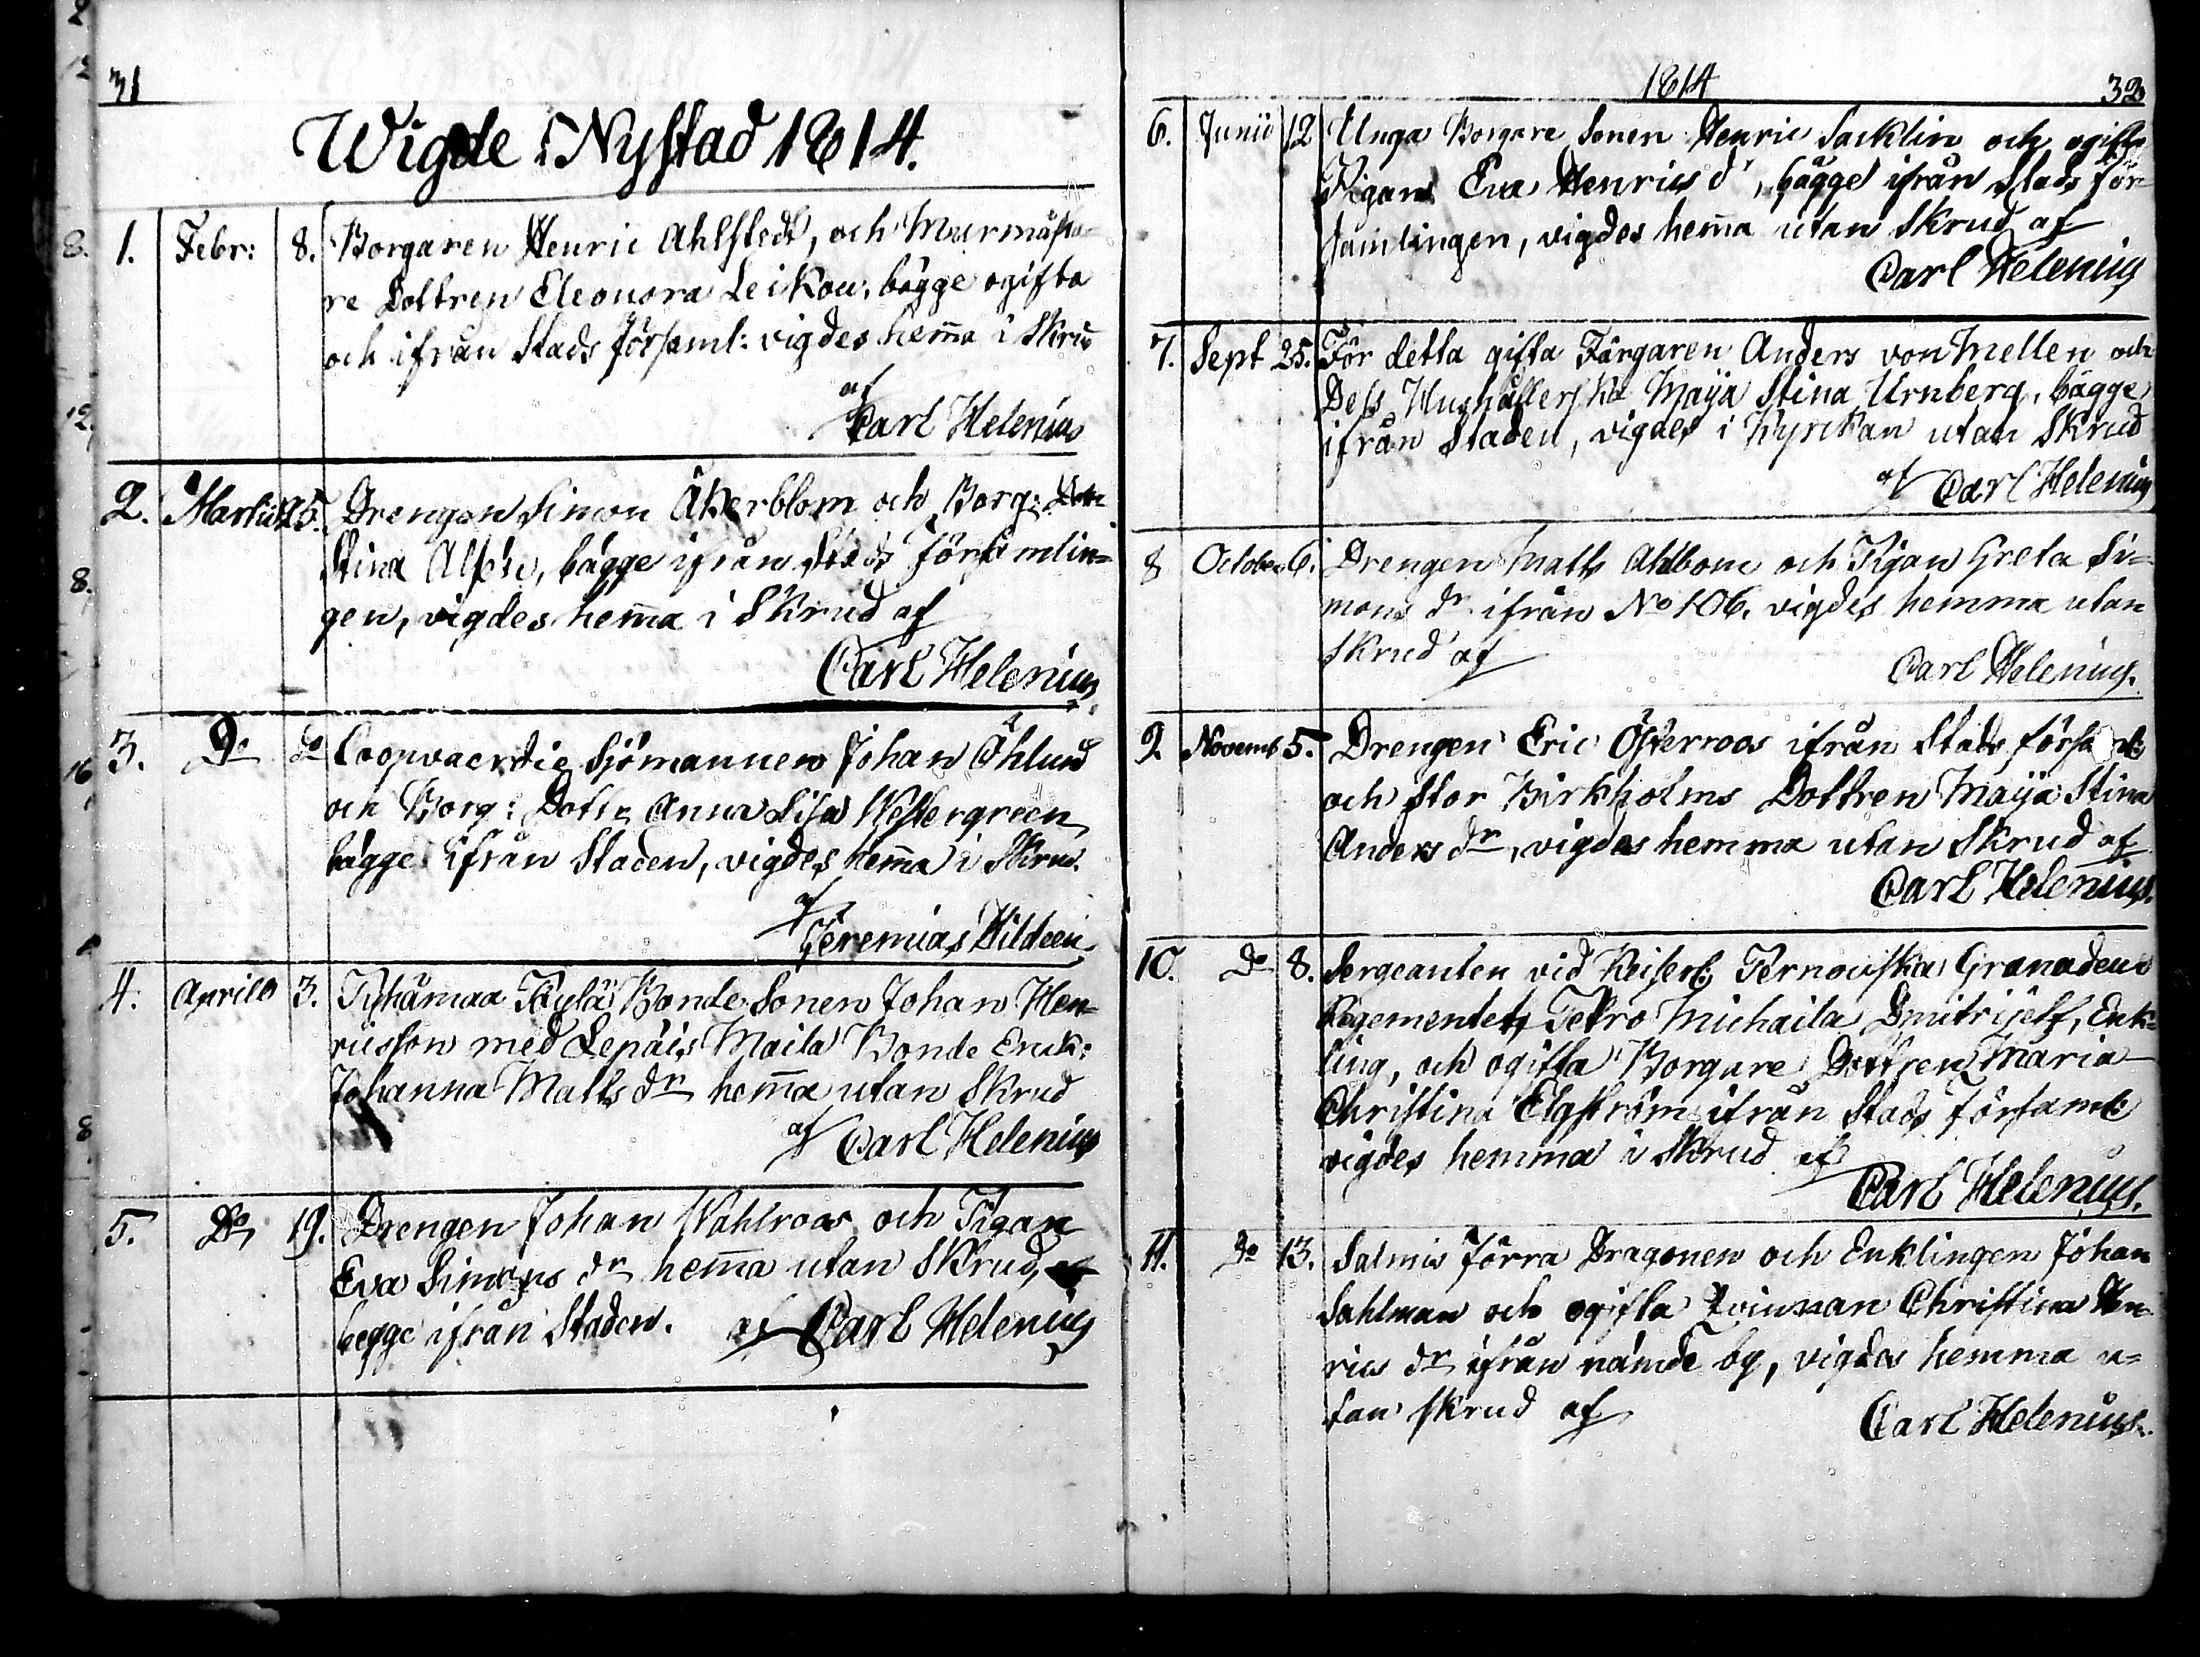 31
Wigde i Nystad 1814.
1. Febr: 8. Borgaren Henric Ahlstedt, och Murmästa-
re Dottren Eleonora Leikou, bägge ogifta
och ifrån Stads församl: vigdes hem̄a i Skrud
af
Carl Helenius
2. Martii 25. Drengen Simon Åkerblom och Borg: Dott:
Stina Alfén, bägge ifrån Stads församlin=
gen, vigdes hem̄a i Skrud af
Carl Helenius.
3. Do Do Coopvaerdie Sjömannen Johan Öhlund
och Borg: Dottr Anna Lisa Westergreen
bägge ifrån Staden, vigdes hem̄a i Skrud.
af
Jeremias Hildeen
4. Aprilis 3. Pyhämaa Böylä Bonde Sonen Johan Hen=
ricsson med Lepäis Maila Bonde Enck:
Johanna Matts dr hem̄a utan Skrud
af Carl Helenius
5. Do 19. Drengen Johan Wahlroos och Pigan
Eva Simons dr hem̄a utan Skrud,
begge ifrån Staden. af Carl Helenius
1814 32
6. Junii 12 Unga Borgare Sonen Henric Sacklin och ogifta
Pigan Eva Henrics dr, bägge ifrån Stads för-
samlingen, vigdes hem̄a utan Skrud af
Carl Helenius
7. Sept 25. För detta gifta Färgaren Anders von Mellen och
Dess Hushållerska Maija Stina Urnberg, bägge
ifrån Staden, vigdes i Kyrckan utan Skrud
af Carl Helenius
8 October 6. Drengen Matts Ahlbom och Pigan Greta Si=
mons dr ifrån No 106. vigdes hemma utan
Skrud af
Carl Helenius.
9 Novemb 5. Drengen Eric Österroos ifrån Stads församl:
och Stor Birkholms Dottren Maija Stina
Anders dr, vigdes hemma utan Skrud af
Carl Helenius.
10. Do 8. Sergeanten vid Keiserl: Pernouska Granadeur
Regementet, Petro Michaila Dmitrijeff, Enk=
ling, och ogifta Borgare Dottren Maria
Christina Elgström ifrån Stads församl:
vigdes hemma i Skrud af
Carl Helenius.
11. Do 13. Salmis Jörra Dragonen och Enklingen Johan
Sahlman och ogifta Qvinnan Christina Hen-
rics dr ifrån nämde by, vigdes hemma u=
tan skrud af
Carl Helenius.